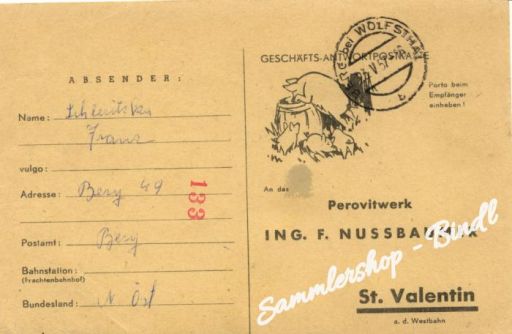 ABSENDER:
Name:
Franz
vulgo:
Adresse: Berg 49
133
Postamt: Berg
Bahnstation:
(Frachtenbahnhof)
Bundesland: N. Öst
BERG bei WOLFSTHAL
a
GESCHÄFTS-ANTWORTPOSTKARTE
Porto beim
Empfänger
einheben!
An das
Perovitwerk
ING. F. NUSSBAUMER
St. Valentin
a. d. Westbahn
Sammlershop - Bindl